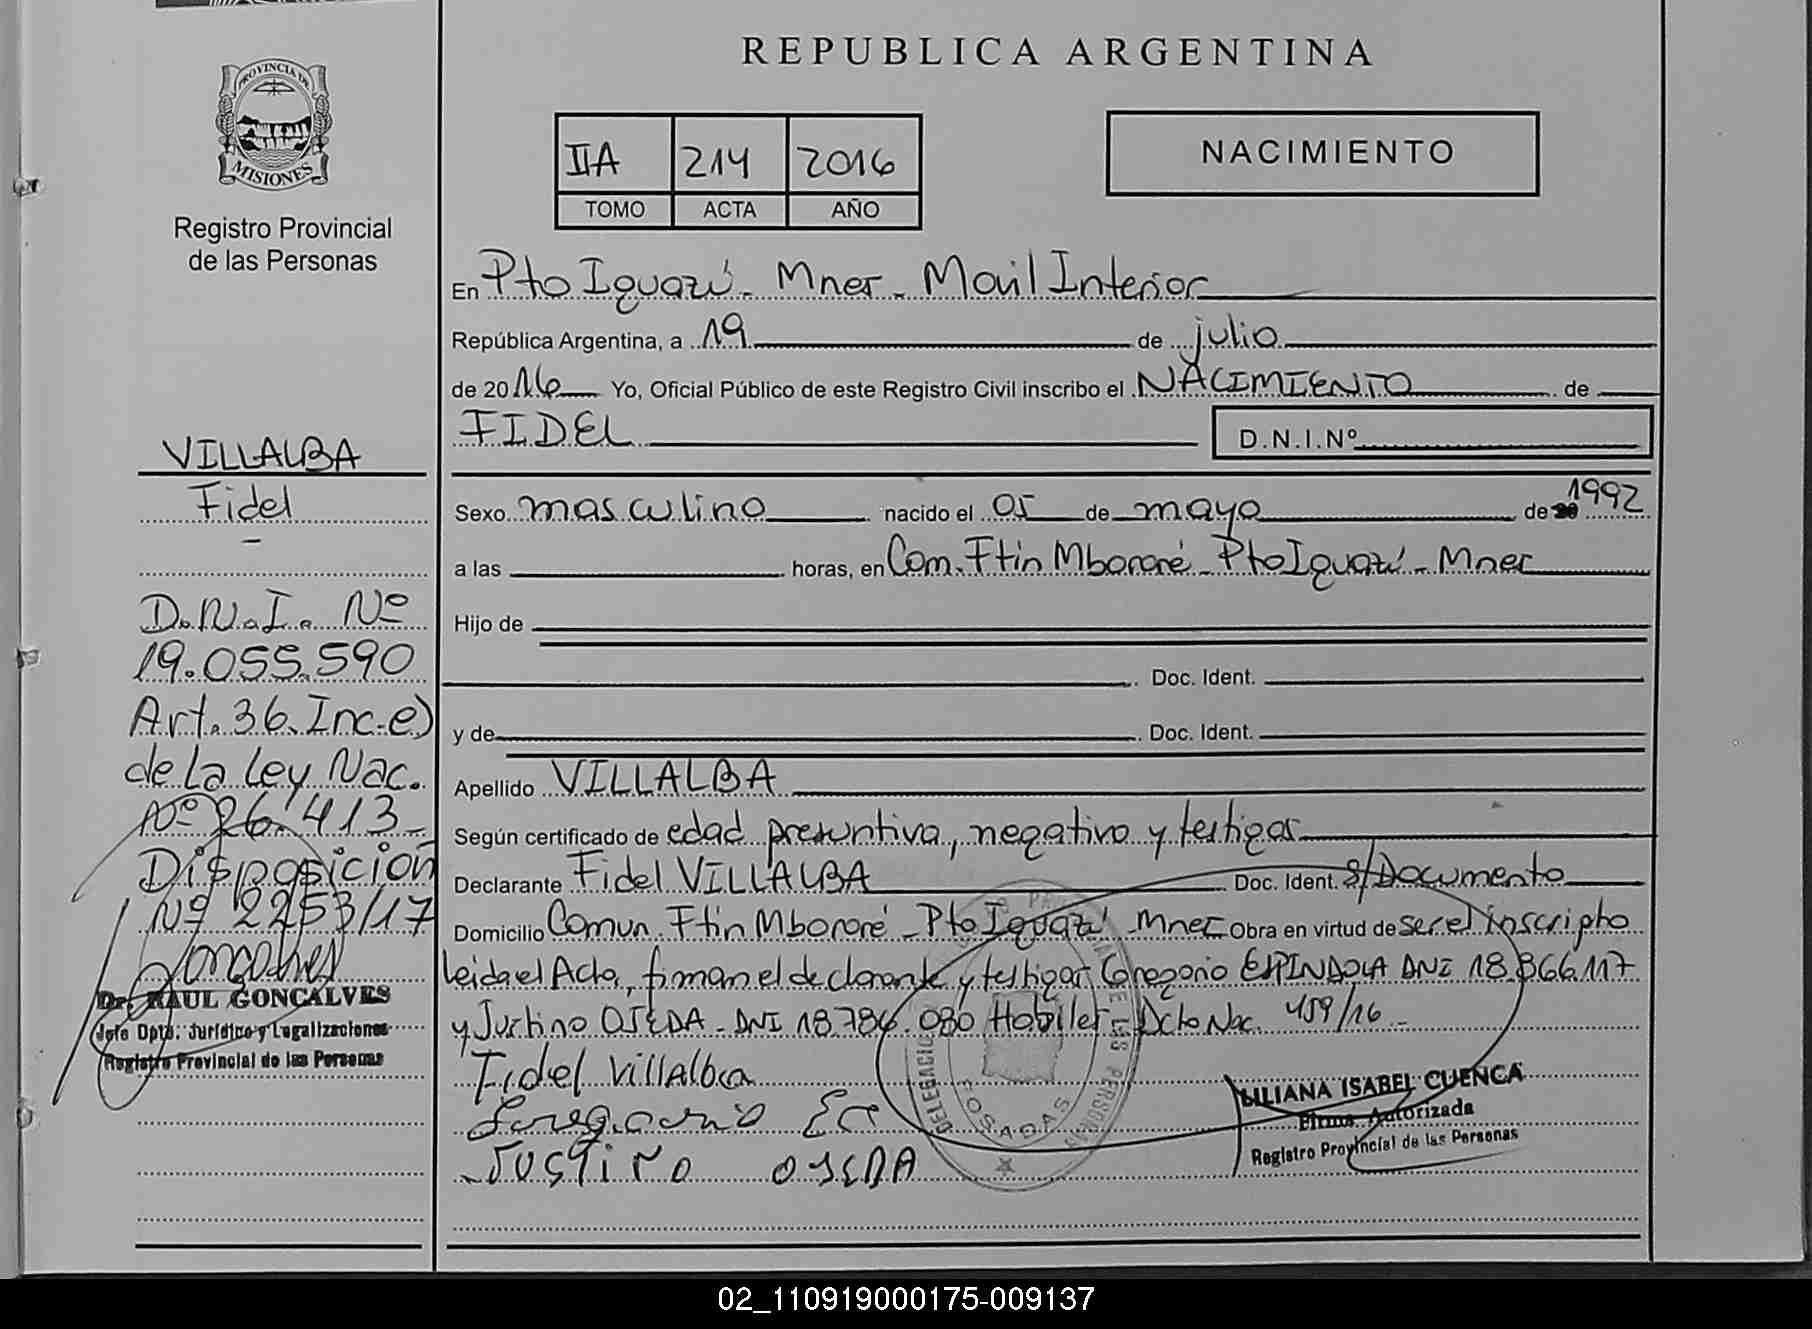 REPUBLICA ARGENTINA
PROVINCIA DE
MISIONES
Registro Provincial
de las Personas
IIA 214 2016
TOMO ACTA AÑO
NACIMIENTO
VILLALBA
Fidel
-
D.N.I. Nº
19.055.590
Art. 36 Inc. e)
de la Ley Nac.
Nº 26.413-
Disposición
Nº 2253/17
Goncalves
Dr. RAUL GONCALVES
Jefe Dpto. Jurídico y Legalizaciones
Registro Provincial de las Personas
En Pto Iguazú - Mnes - Movil Interior
República Argentina, a 19 de julio
de 2016 Yo, Oficial Público de este Registro Civil inscribo el NACIMIENTO de
FIDEL D.N.I.Nº
Sexo masculino nacido el 05 de mayo de 1992
a las horas, en Com. Ftin Mbororé - Pto Iguazú - Mnes
Hijo de
Doc. Ident.
y de Doc. Ident.
Apellido VILLALBA
Según certificado de edad presuntiva, negativo y testigos
Declarante Fidel VILLALBA Doc. Ident. S/Documento
Domicilio Comun. Ftin Mbororé - Pto Iguazú - Mnes Obra en virtud de ser el inscripto
Leida el Acta, firman el declarante y testigos Gregorio ESPINDOLA DNI 18.866.117
y Justino OJEDA - DNI 18.786.080 Dcto Nac. 459/16 -
Fidel Villalba
Justino OJEDA
DELEGACIO
POSADAS
LILIANA ISABEL CUENCA
Firma Autorizada
Registro Provincial de las Personas
02_110919000175-009137